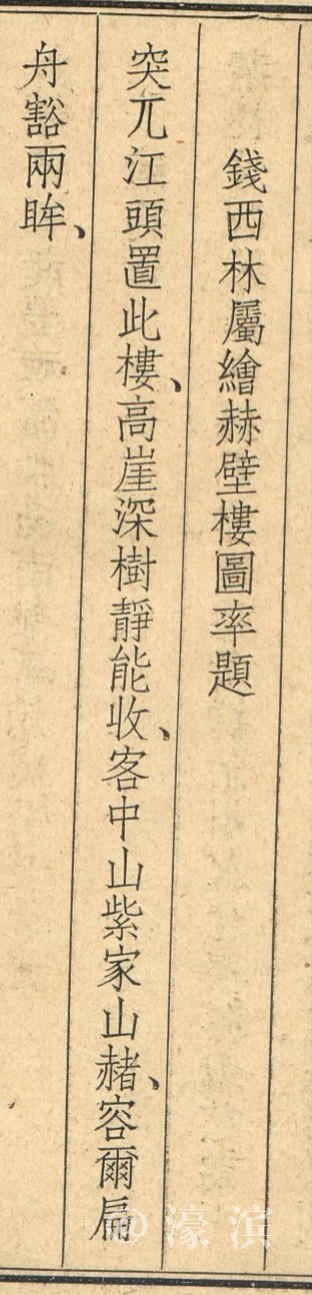 錢西林屬繪赫壁樓圖率題
突兀江頭置此樓、高崖深樹靜能收、客中山紫家山赭、容爾扁
舟豁兩眸、
@濠滨